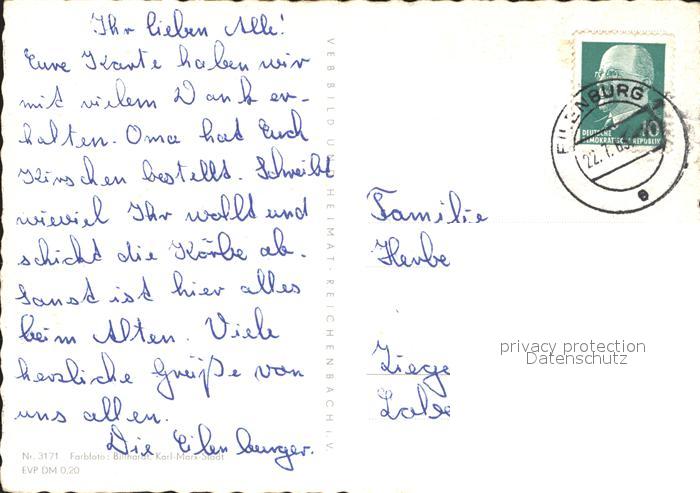 Ihr lieben Alle!
Eure Karte haben wir
mit vielem Dank er-
halten. Oma hat Euch
Kirschen bestellt. Schreibt
wieviel Ihr wollt und
schickt die Körbe ab.
Sonst ist hier alles
beim Alten. Viele
herzliche Grüße von
uns allen.
Die Eilenburger.
Nr. 3171 Farbfoto: Karl-Marx-Stadt
EVP DM 0,20
VEB BILD UND HEIMAT · REICHENBACH i. V.
EILENBURG
22. 7.
10
DEUTSCHE
DEMOKRATISCHE REPUBLIK
e
Familie
privacy protection
Datenschutz